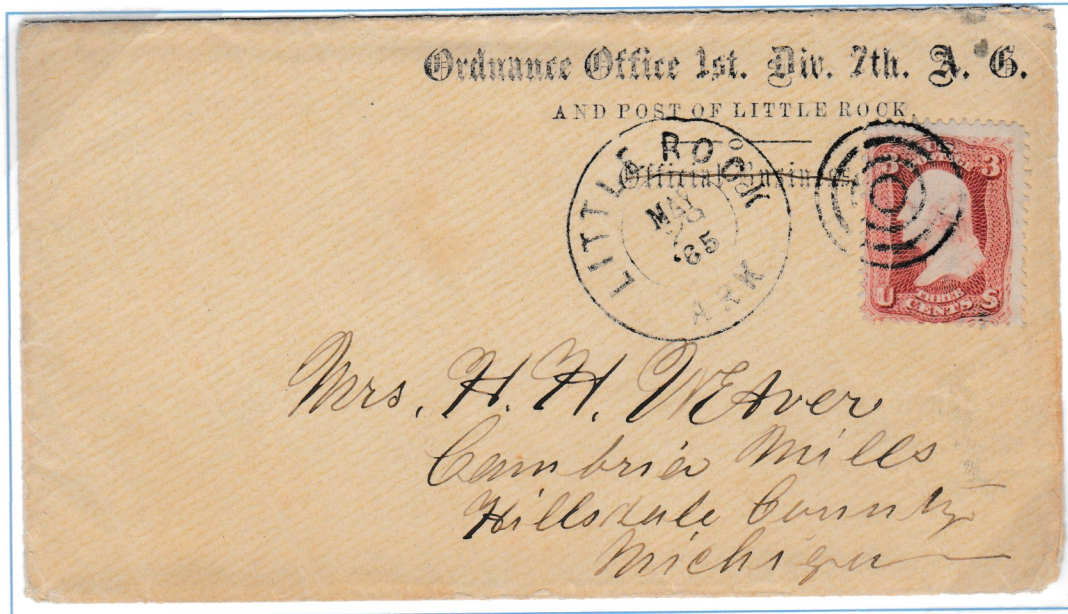 Ordnance Office 1st. Div. 7th. A. C.
AND POST OF LITTLE ROCK,
Official Business
LITTLE ROCK
MAY
'65
ARK
3 3
U THREE S
CENTS
Mrs. H. H. WEAver
Cambria Mills
Hillsdale County
Michigan